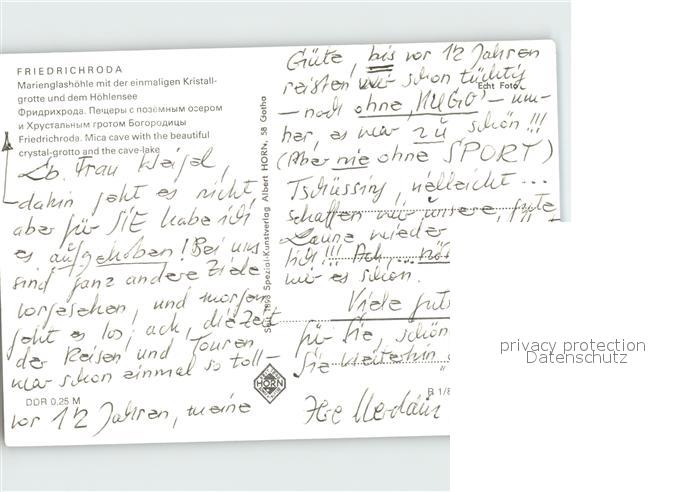 FRIEDRICHRODA
Marienglashöhle mit der einmaligen Kristall-
grotte und dem Höhlensee
Фридрихрода. Пещеры с поземным осером
и Хрустальным гротом Богородицы
Friedrichroda. Mica cave with the beautiful
crystal-grotto and the cave-lake
Lb. Frau Weißel,
dahin geht es nicht
aber für SIE habe ich
es aufgehoben! Bei uns
sind ganz andere Ziele
vorgesehen, und morgen
geht es los; ach, die Zeit
der Reisen und Touren
war schon einmal so toll –
vor 12 Jahren, meine
DDR 0,25 M
Seit 1898 Spezial-Kunstverlag Albert HORN, 58 Gotha
HORN
Güte, bis vor 12 Jahren
reisten wir schon tüchtig
Echt Foto
– noch ohne „HUGO" – um-
her, es war zu schön!!!
(Aber nie ohne SPORT)
Tschüssing, vielleicht ...
schaffen wir unsere gute
Laune wieder
lich!!! Ach,
wir es schon.
Viele gute
für Sie, schön
Sie weiterhin
R 1/8
Ihre
privacy protection
Datenschutz